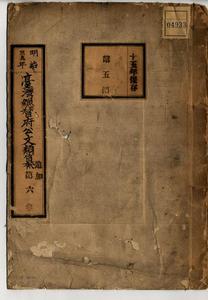 04933
十五年保存
第五
明治
年
臺灣總督府公文類纂
追加
第六